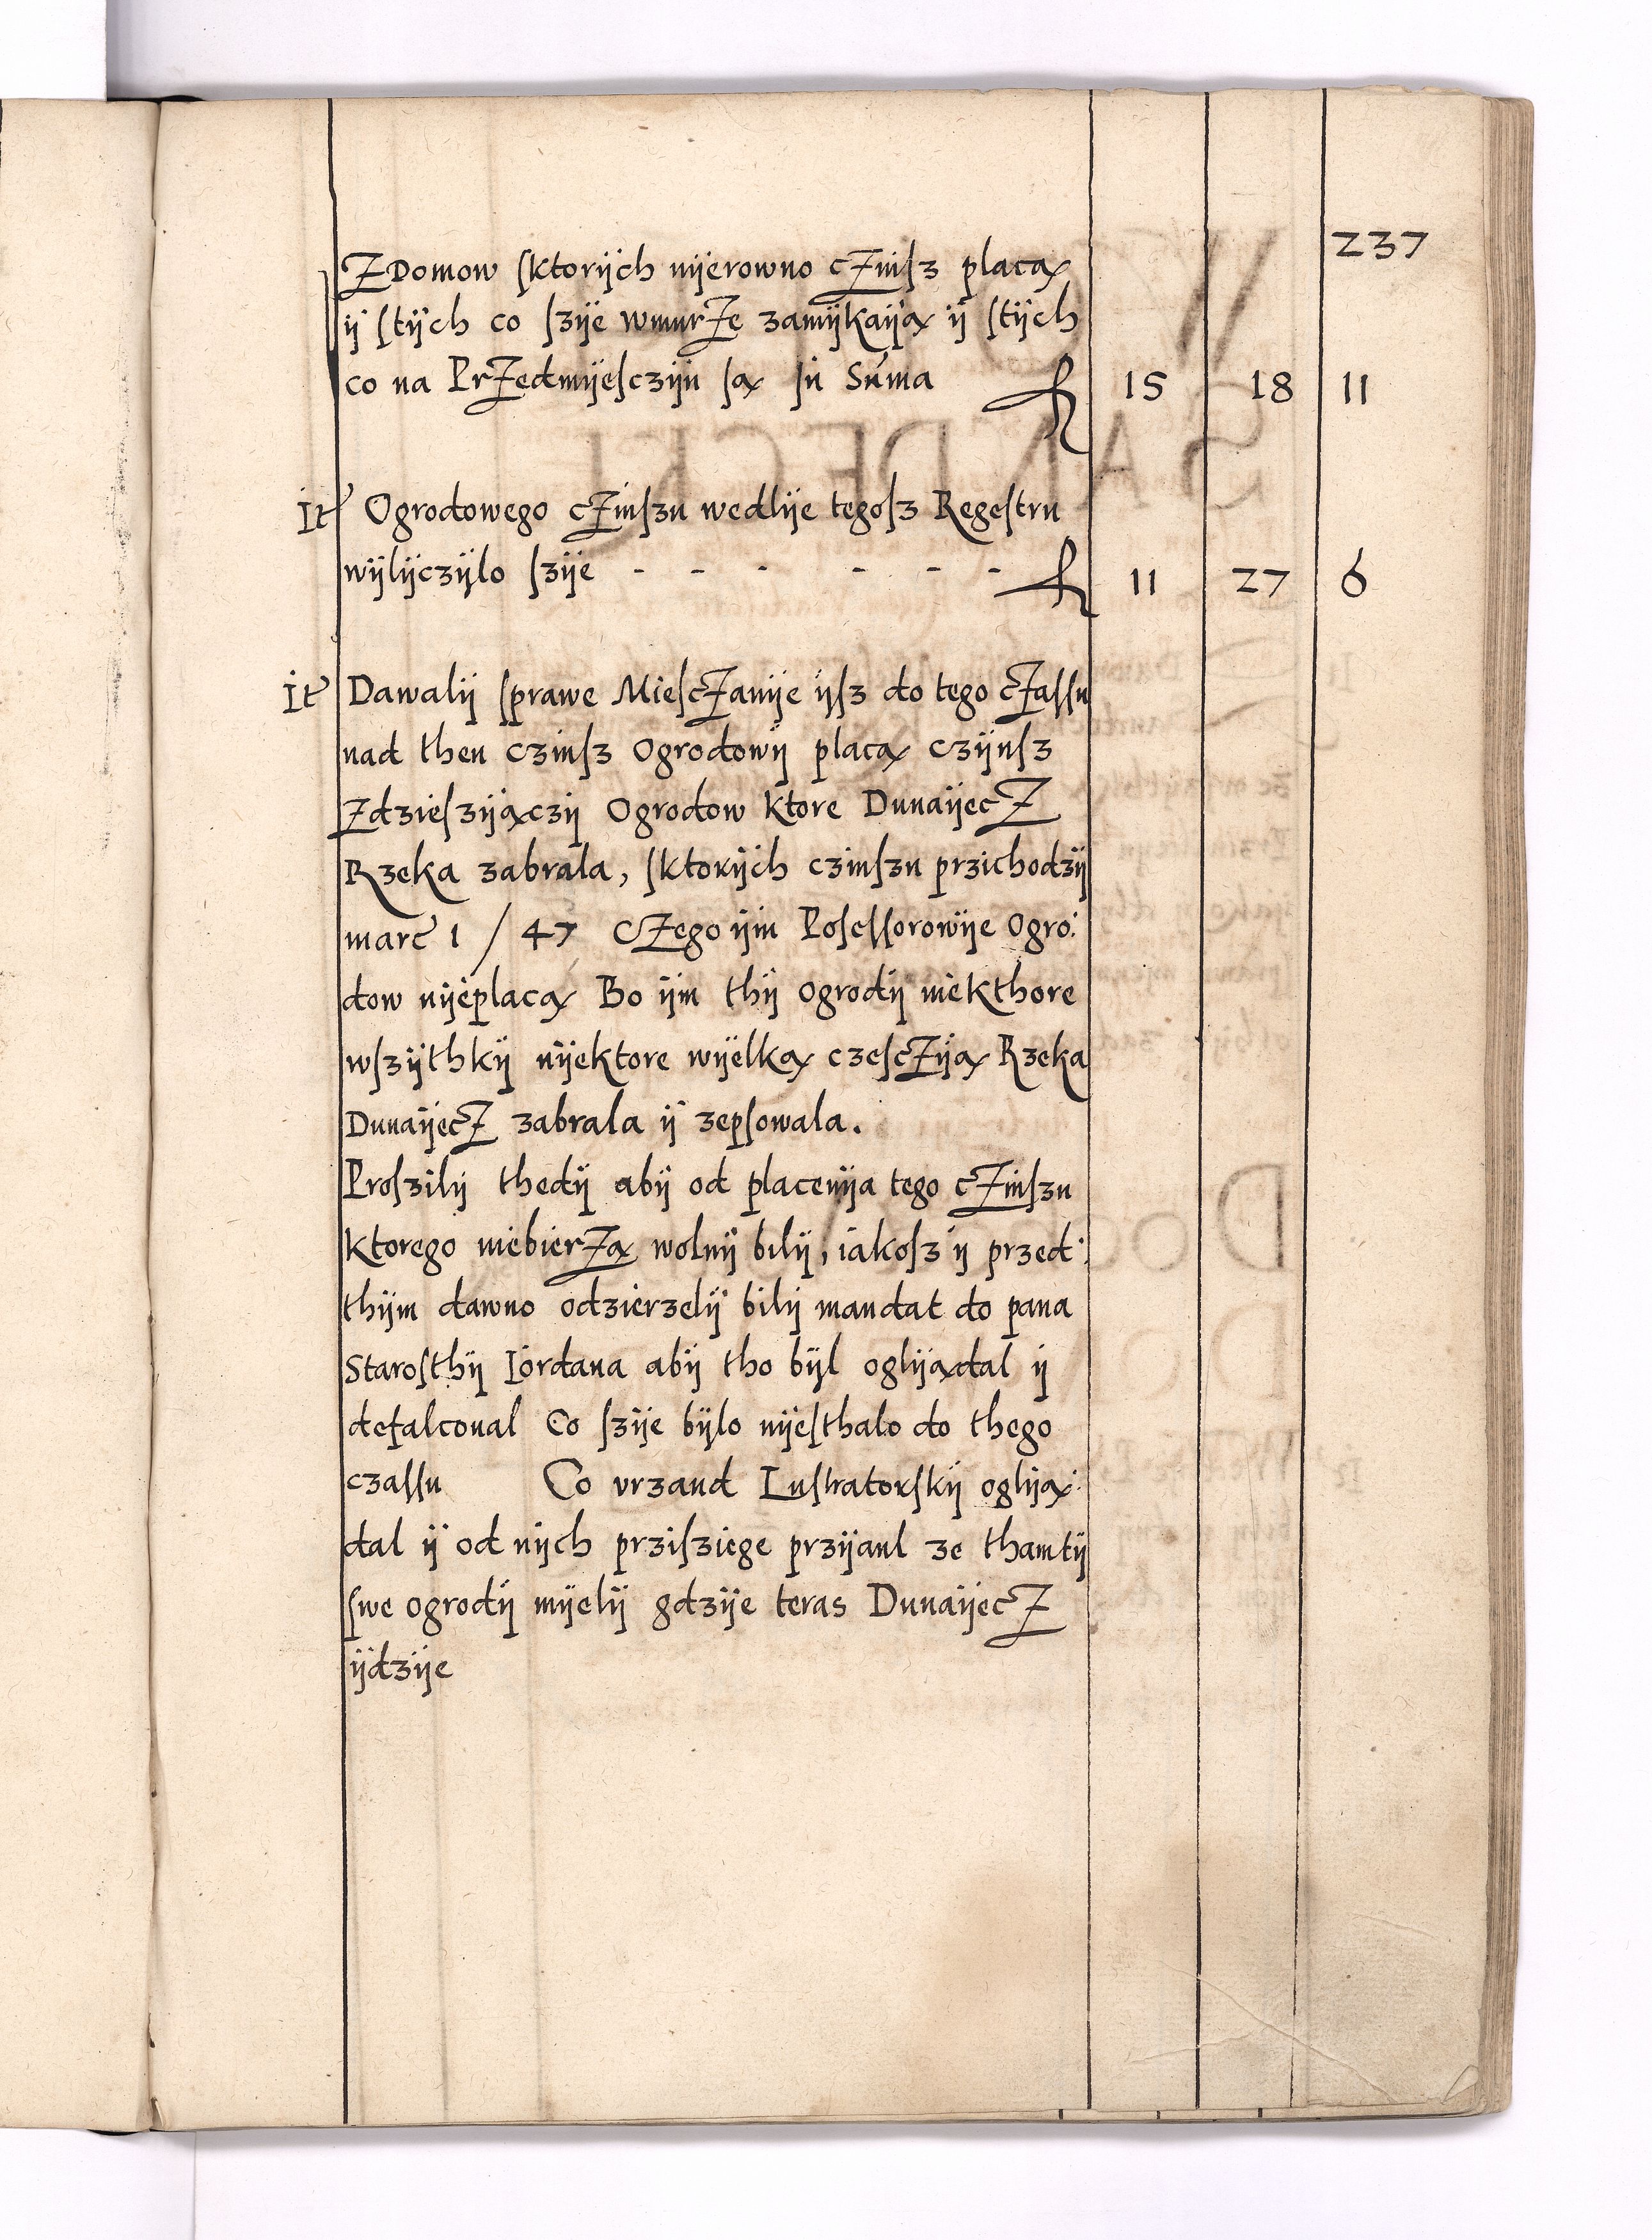 237
ZDomow sktorÿch nÿerowno cZinsz placą
ÿ stÿch co szÿe wmurZe zamÿkaÿą ÿ stÿch
co na PrZedmÿesczÿu są in Suma f 15 18 11
It Ogrodowego cZinszu wedlÿe tegosz Regestru
wÿlÿczÿlo szÿe - - - - - - f 11 27 6
It Dawalÿ sprawe MiescZanÿe ÿsz do tego cZassu
nad then czinsz Ogrodowÿ placą czÿnsz
Zdzieszÿączÿ Ogrodow ktore DunaÿecZ
Rzeka zabrala, sktorÿch czinszu przichodzÿ
marc 1 / 47 CZego ÿm Posessorowÿe Ogro:
dow nÿeplacą Bo ÿm thÿ ogrodÿ niekthore
wszÿthkÿ nÿektore wÿelką czescZÿą Rzeka
DunaÿecZ zabrala ÿ zepsowala.
Proszilÿ thedÿ abÿ od placenÿa tego cZinszu
ktorego niebierZą wolnÿ bilÿ, iakosz ÿ przed:
thÿm dawno odzierzelÿ bilÿ mandat do pana
Starosthÿ Iordana abÿ tho bÿl oglÿądal ÿ
defalcoual Co szÿe bÿlo nÿesthalo do thego
czassu Co vrzand Lustratorskÿ oglÿą:
dal ÿ od nÿch przisziege przÿanl ze thamtÿ
swe ogrodÿ mÿelÿ gdzÿe teras DunaÿecZ
ÿdzÿe